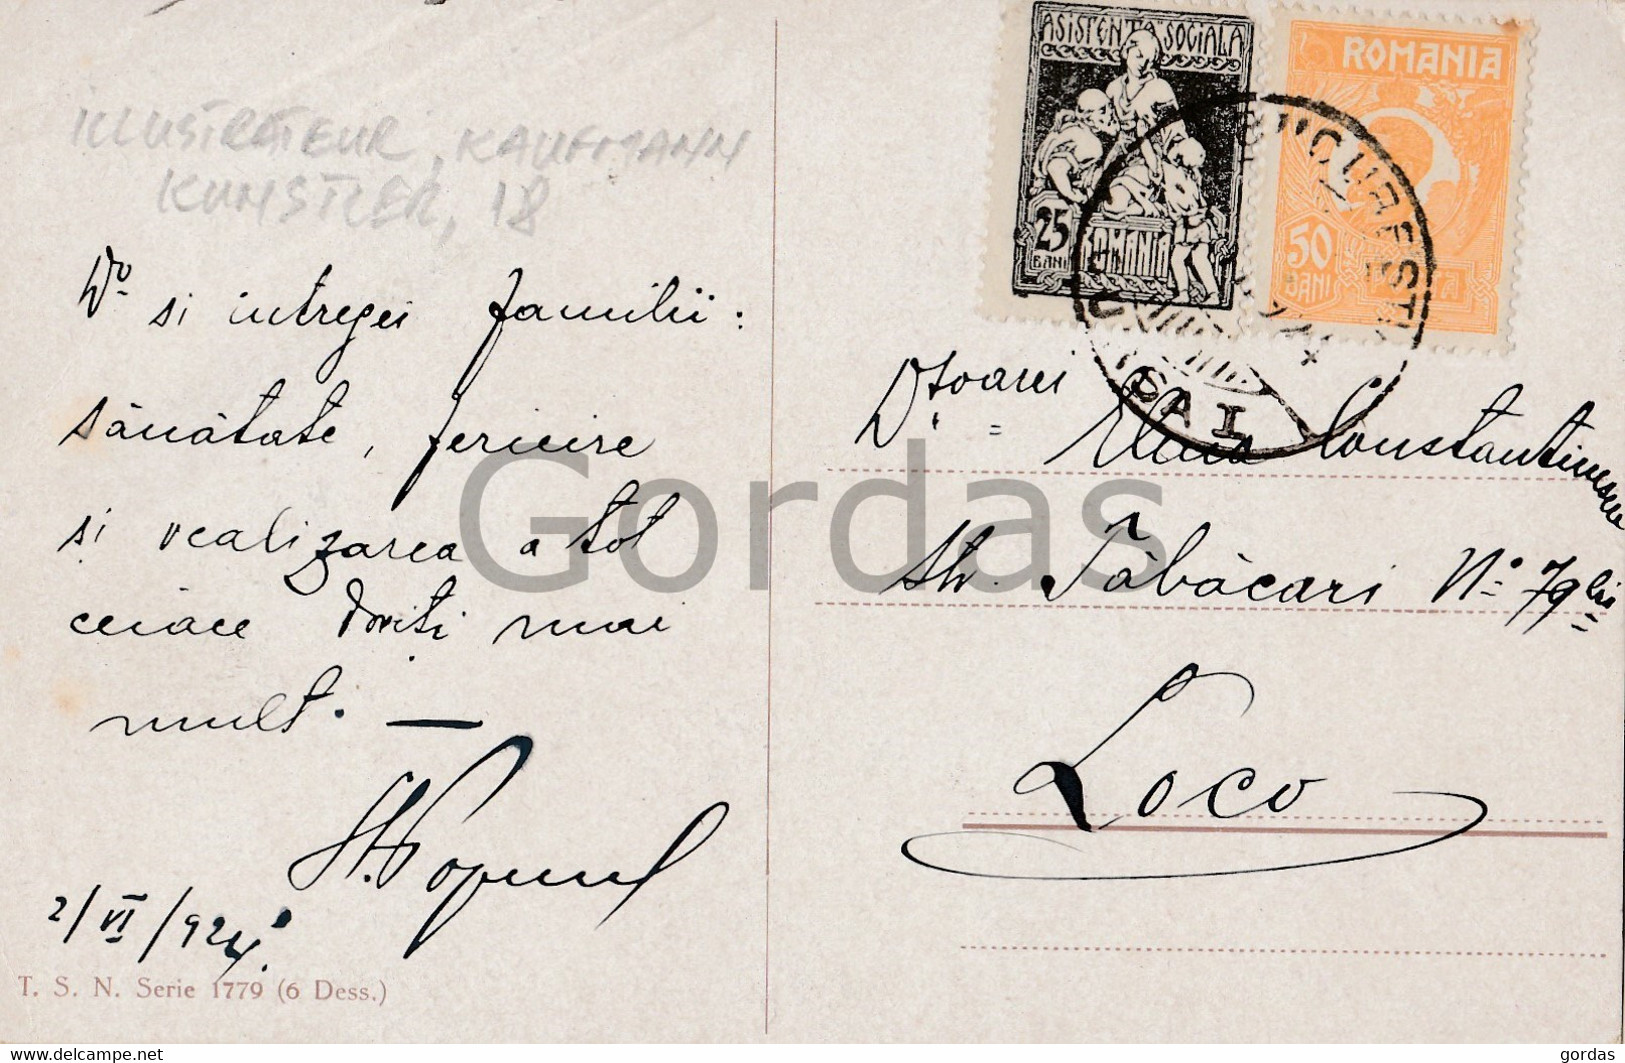 ILLUSTRATEUR, KAUFMANN
KUNSTLER, 18
si intregei familii:
sănătate, fericire
si realizarea a tot
ceiace doriti mai
mult. —
2/VI/924.
T. S. N. Serie 1779 (6 Dess.)
ASISTENTA SOCIALA
25
BANI
ROMANIA
ROMANIA
50
BANI
POSTA
BUCURESTI
Dșoarei
Constantinescu
Str. Tăbăcari No 79 bis
Loco
Gordas
www.delcampe.net
gordas